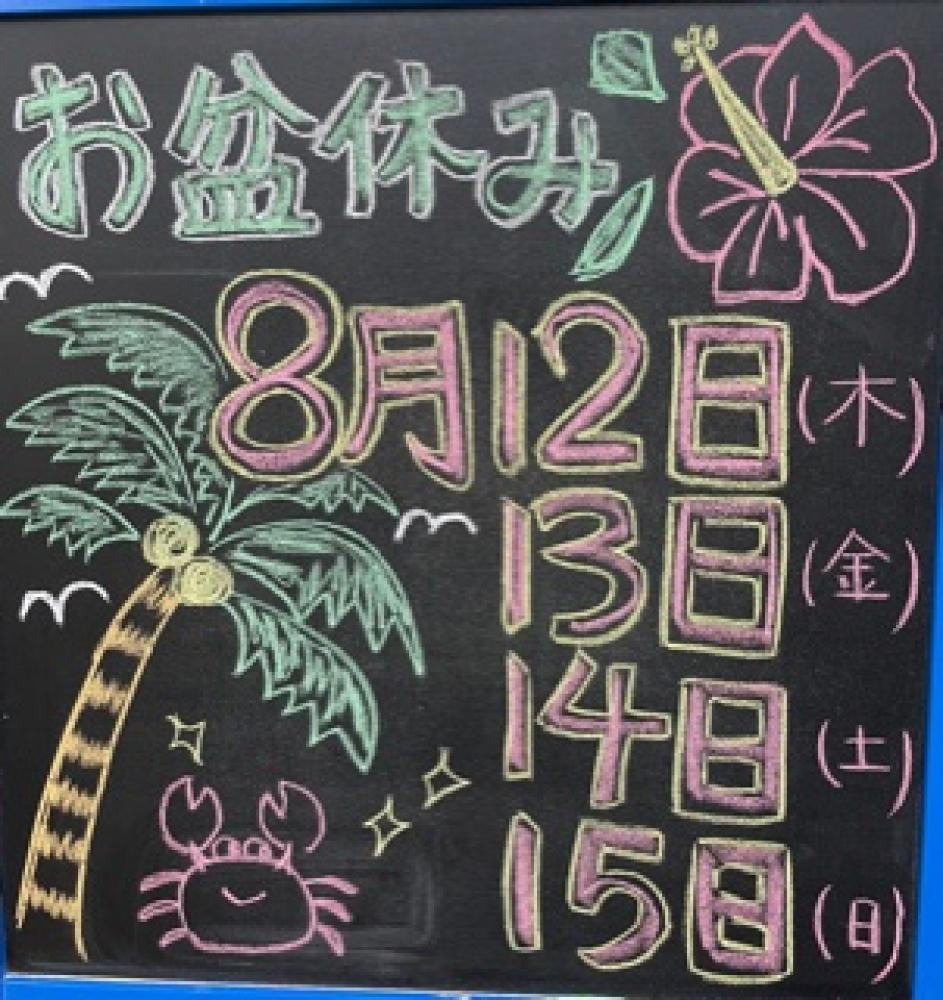 お盆休み
8月12日(木)
13日(金)
14日(土)
15日(日)